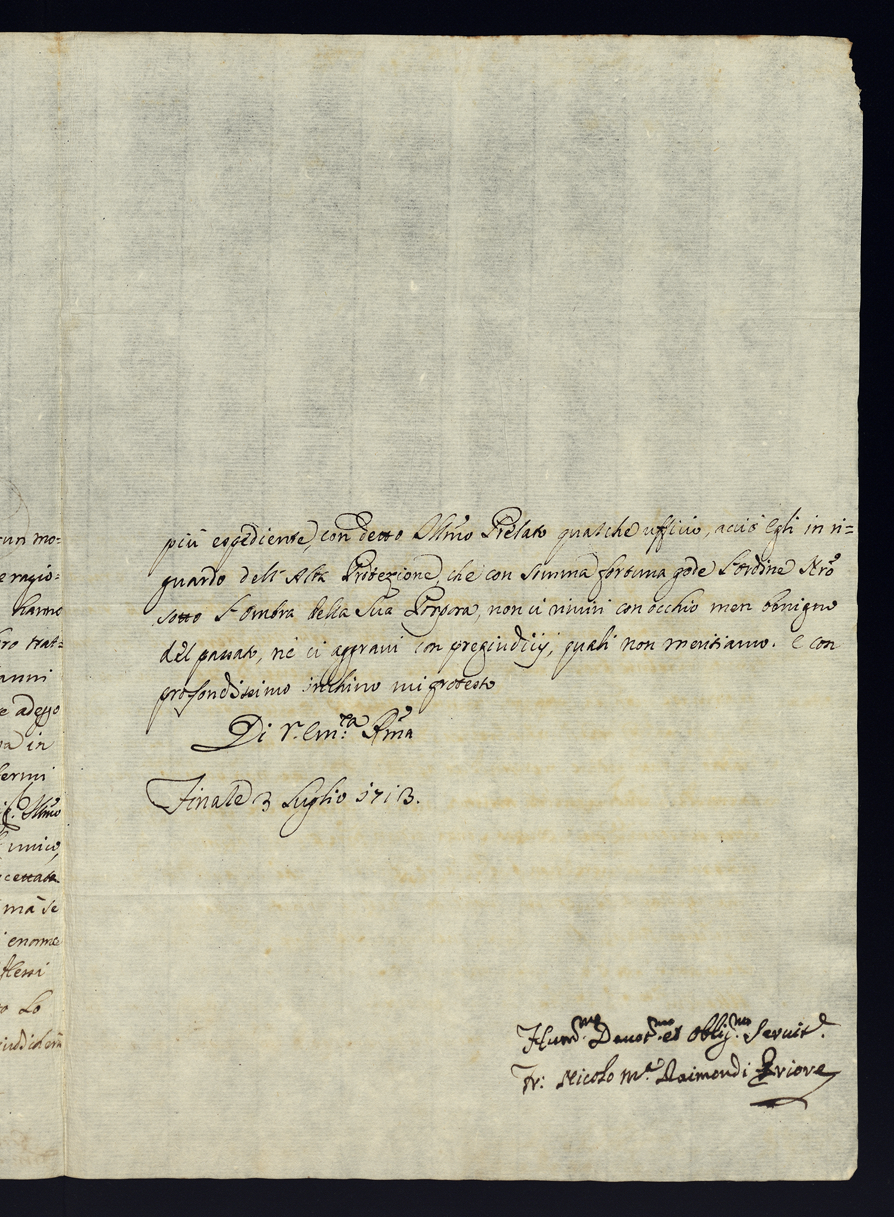 cun mo=
e ragio=
hanno
ro trat=
anni
e adesso
in
fermi
Illmo
unico,
accettata
mà se
enorme
to Lo
più espediente, con detto Illmo Prelato qualche ufficio, acciò Egli in ri=
guardo dell' Alta Protezione, che con somma fortuna gode l'ordine Nrõ
sotto l'ombra della Sua Porpora, non ci rimiri con occhio men benigno
del passato, nè ci aggravi con pregiudicij, quali non meritiamo. E con
profondissimo inchino mi protesto
Di V. Em:za Rma
Finale 3 Luglio 1713.
Hum.mo Devot.mo et Oblig.mo Servit.e
Fr: Nicolo M.a Raimondi Priore